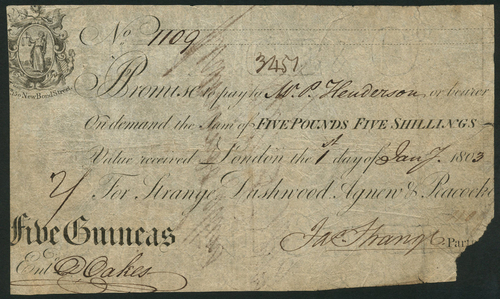 No. 1109
3451
New Bond Street
I Promise to pay to Mr. P. Henderson, or bearer
On demand the Sum of FIVE POUNDS FIVE SHILLINGS
Value received London the 1st day of Jany. 1803
For Strange, Dashwood, Agnew & Peacocke
Five Guineas
Jas. Strange
Entd D Oakes